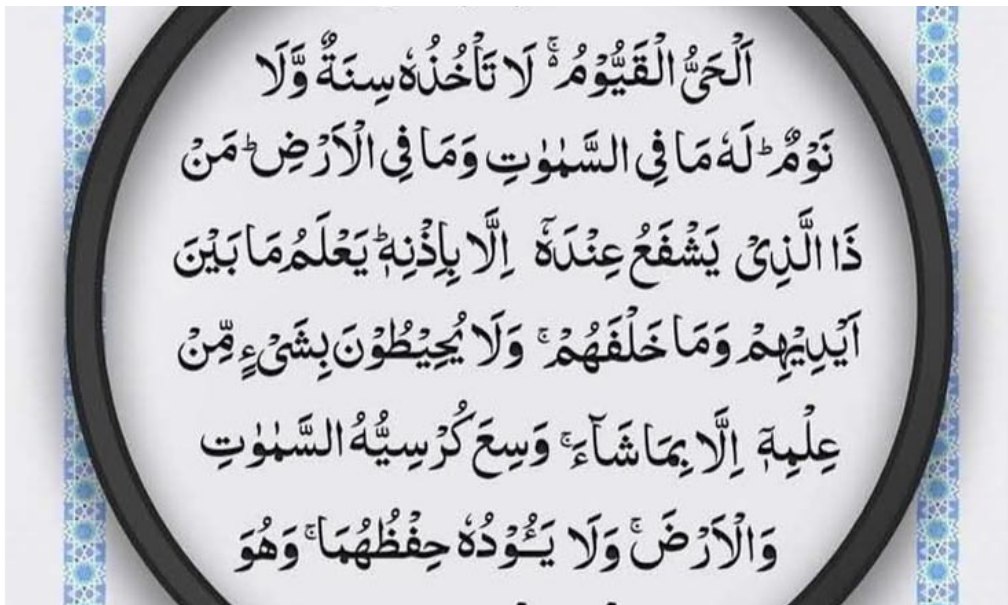 اَلْحَیُّ الْقَیُّوْمُ ۚ۬ لَا تَاْخُذُهٗ سِنَةٌ وَّلَا
نَوْمٌ ؕ لَهٗ مَا فِی السَّمٰوٰتِ وَمَا فِی الْاَرْضِ ؕ مَنْ
ذَا الَّذِیْ یَشْفَعُ عِنْدَهٗۤ اِلَّا بِاِذْنِهٖ ؕ یَعْلَمُ مَا بَیْنَ
اَیْدِیْهِمْ وَمَا خَلْفَهُمْ ۚ وَلَا یُحِیْطُوْنَ بِشَیْءٍ مِّنْ
عِلْمِهٖۤ اِلَّا بِمَا شَآءَ ۚ وَسِعَ كُرْسِیُّهُ السَّمٰوٰتِ
وَالْاَرْضَ ۚ وَلَا یَـُٔوْدُهٗ حِفْظُهُمَا ۚ وَهُوَ